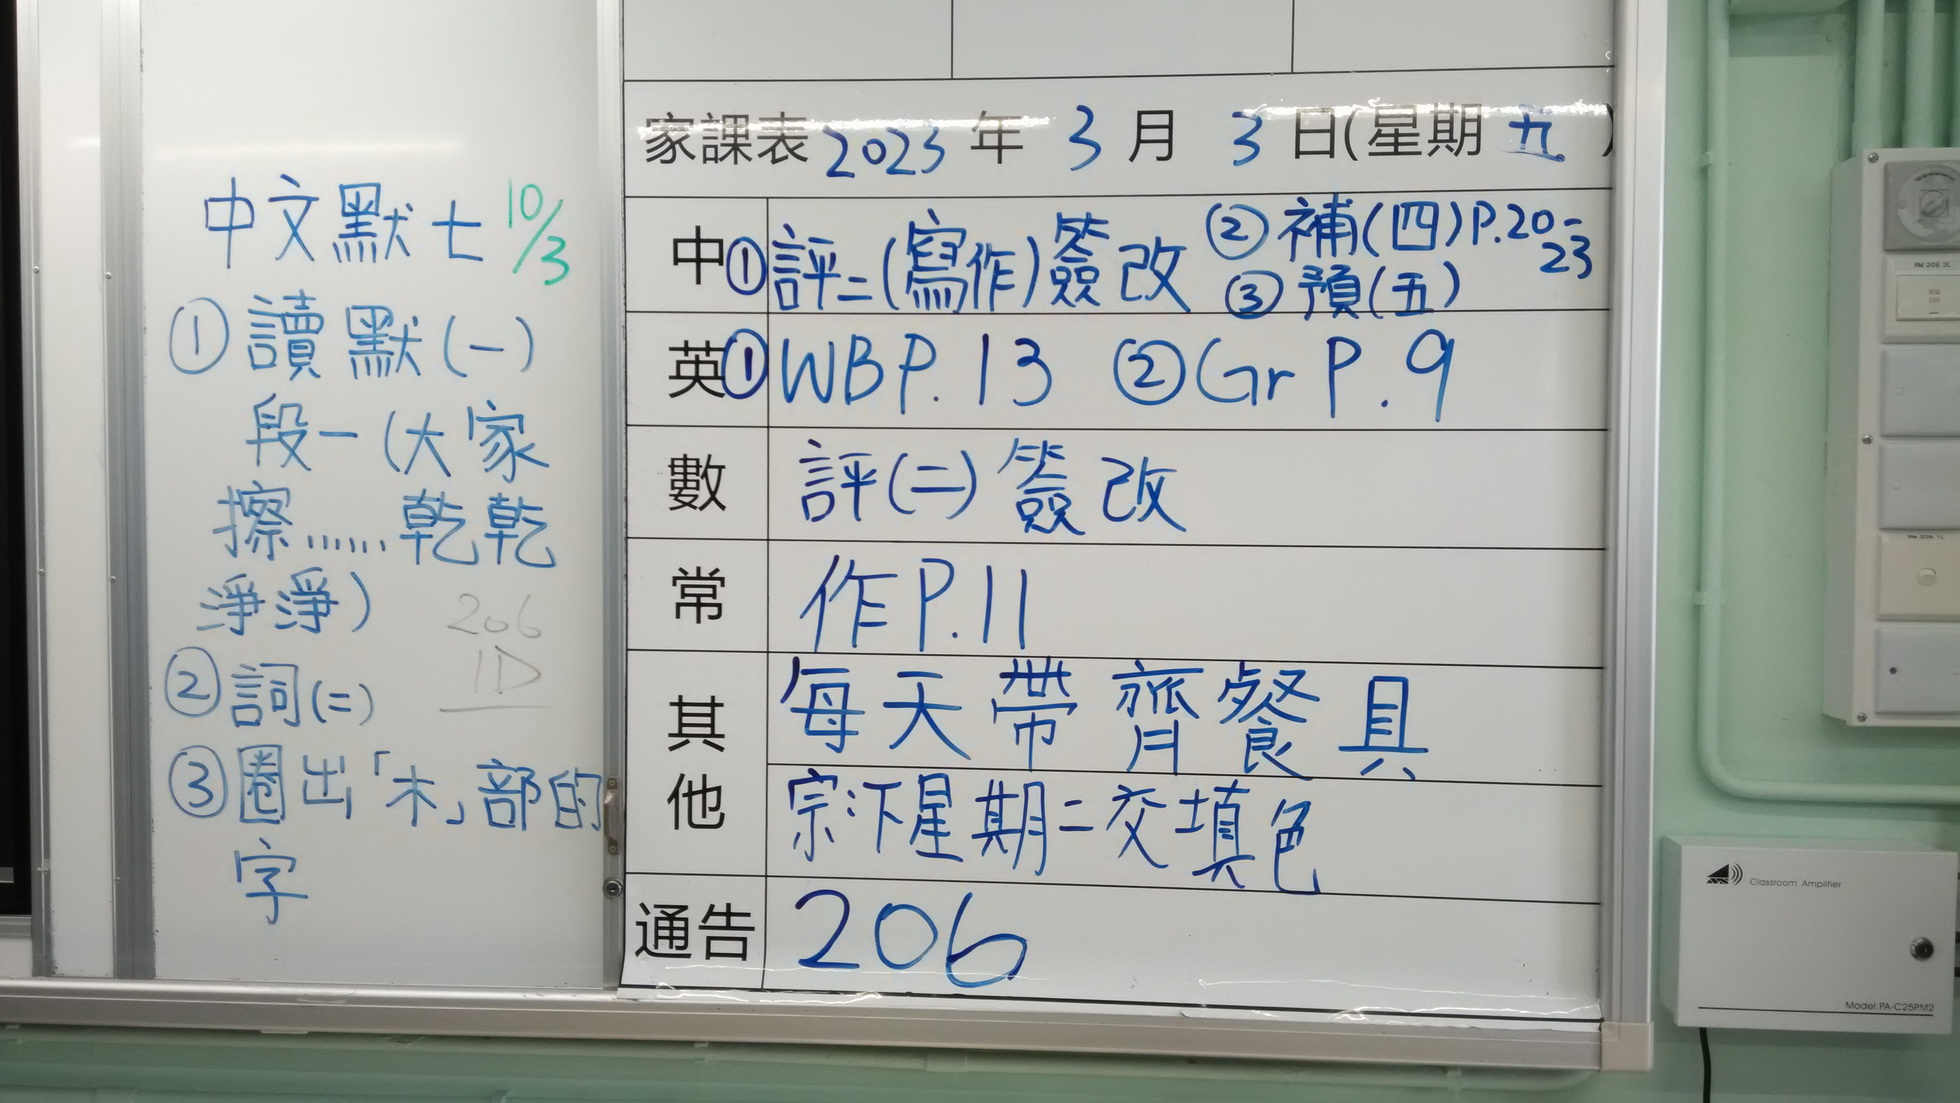 中文默七 10/3
①讀默(一)
段一(大家
擦......乾乾
淨淨)
②詞(二)
③圈出「木」部的
字
206
1D
家課表 2023 年 3 月 3 日(星期 五 )
中 ①評二(寫作)簽改 ②補(四)P.20-23
③預(五)
英 ①WB P.13 ②Gr P.9
數 評(二)簽改
常 作P.11
其他 每天帶齊餐具
星期二交填色
通告 206
Classroom Amplifier
Model:PA-C25PM2